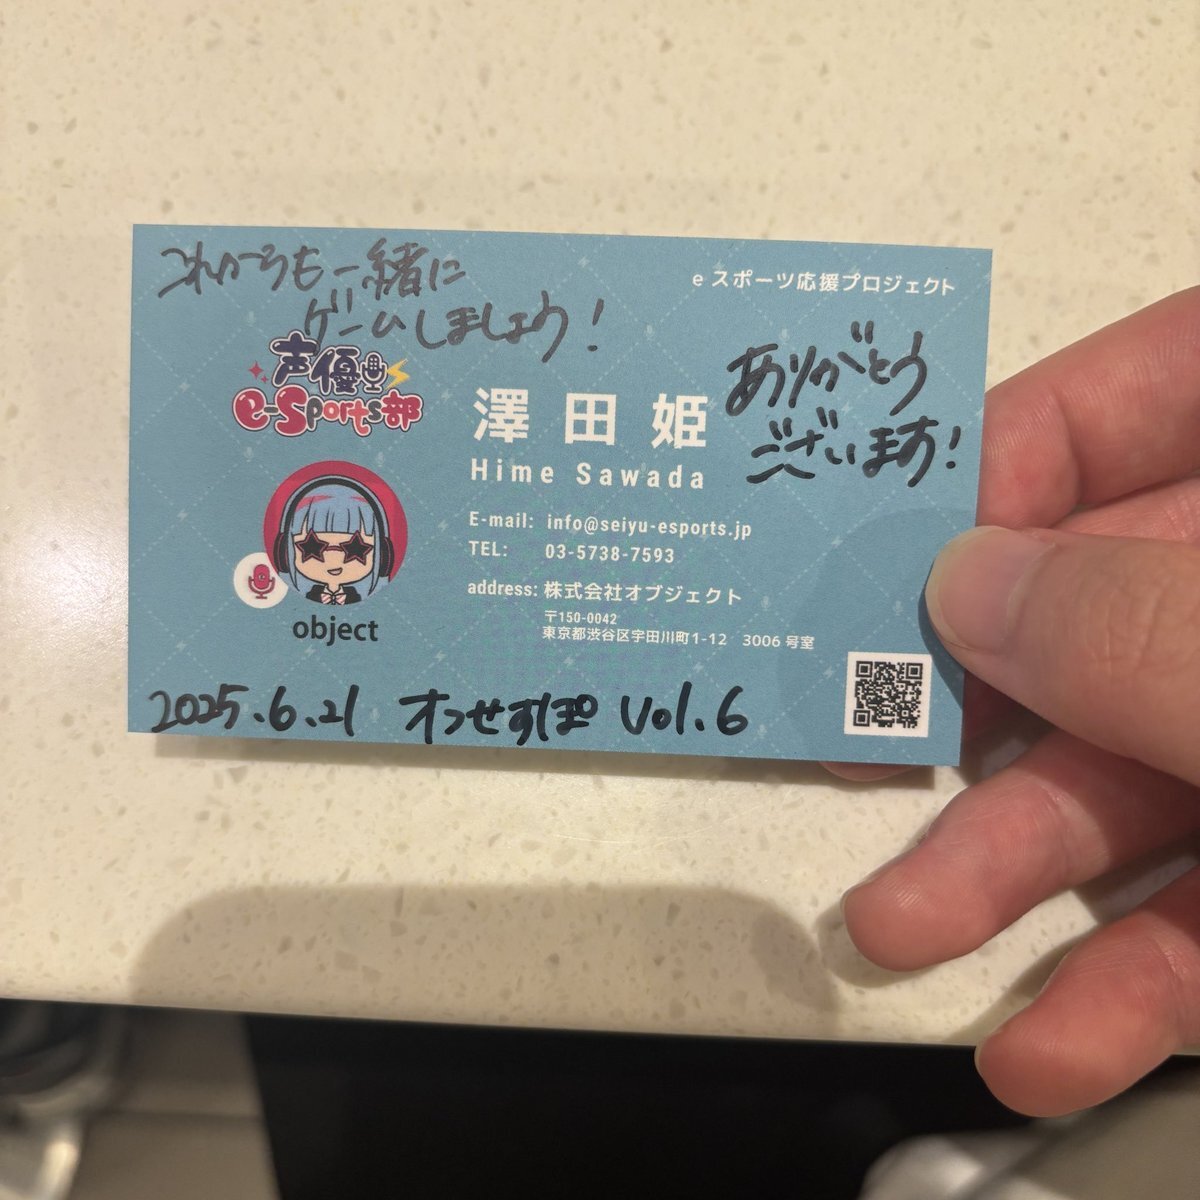 これからも一緒に
ゲームしましょう!
eスポーツ応援プロジェクト
ありがとう
ございます!
声優
e-Sports部
澤田姫
Hime Sawada
E-mail: info@seiyu-esports.jp
TEL: 03-5738-7593
address: 株式会社オブジェクト
〒150-0042
東京都渋谷区宇田川町1-12 3006号室
object
2025.6.21 オフせすぽ Vol.6